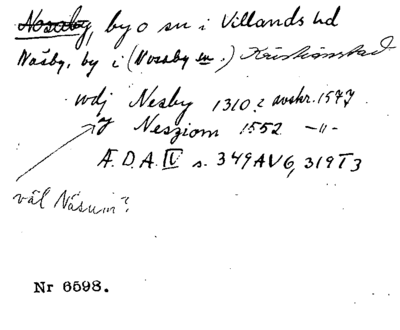 Nosaby, by o sn i Villands hd
Näsby, by i (Nosaby sn.) Kristianstad
wdj Nesby 1310? avskr. 1577
ij Nesziom 1552 -"-
Æ.D.A. IV s. 349 AV6, 319 T3
väl Näsum?
Nr 6598.